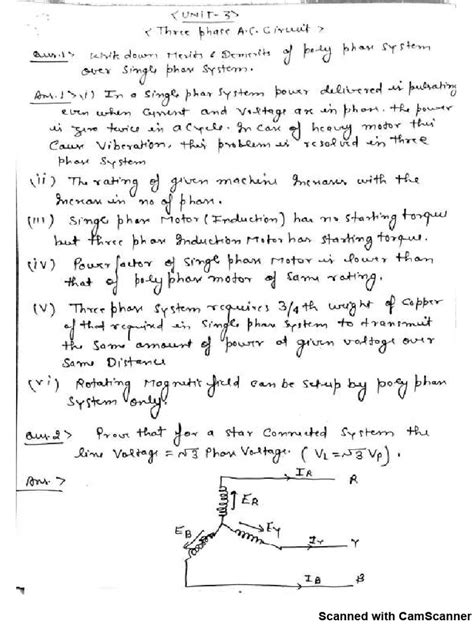 <UNIT-3>
< Three phase A.C. Circuit >
Que.1> Write down Merits & Demerits of poly phase System
over Single phase System.
Ans.1> (i) In a Single phase System power delivered is pulsating
even when Current and Voltage are in phase. the power
is zero twice in a Cycle. In Case of heavy motor this
Cause Viberation, this problem is resolved in three
phase System
(ii) The rating of given machine Increases with the
Increase in no of phase.
(iii) Single phase Motor (Induction) has no starting torque
but three phase Induction Motor has starting torque.
(iv) Power factor of Single phase Motor is lower than
that of polyphase motor of Same rating.
(v) Three phase System requires 3/4th weight of Copper
of that required in Single phase System to transmit
the Same amount of power at given voltage over
Same Distance
(vi) Rotating Magnetic field can be setup by poly phase
System only.
Que.2> Prove that for a star Connected System the
line Voltage = √3 Phase Voltage. (VL = √3 VP).
Ans.>
IR R
ER
EB EY
IY Y
IB B
Scanned with CamScanner